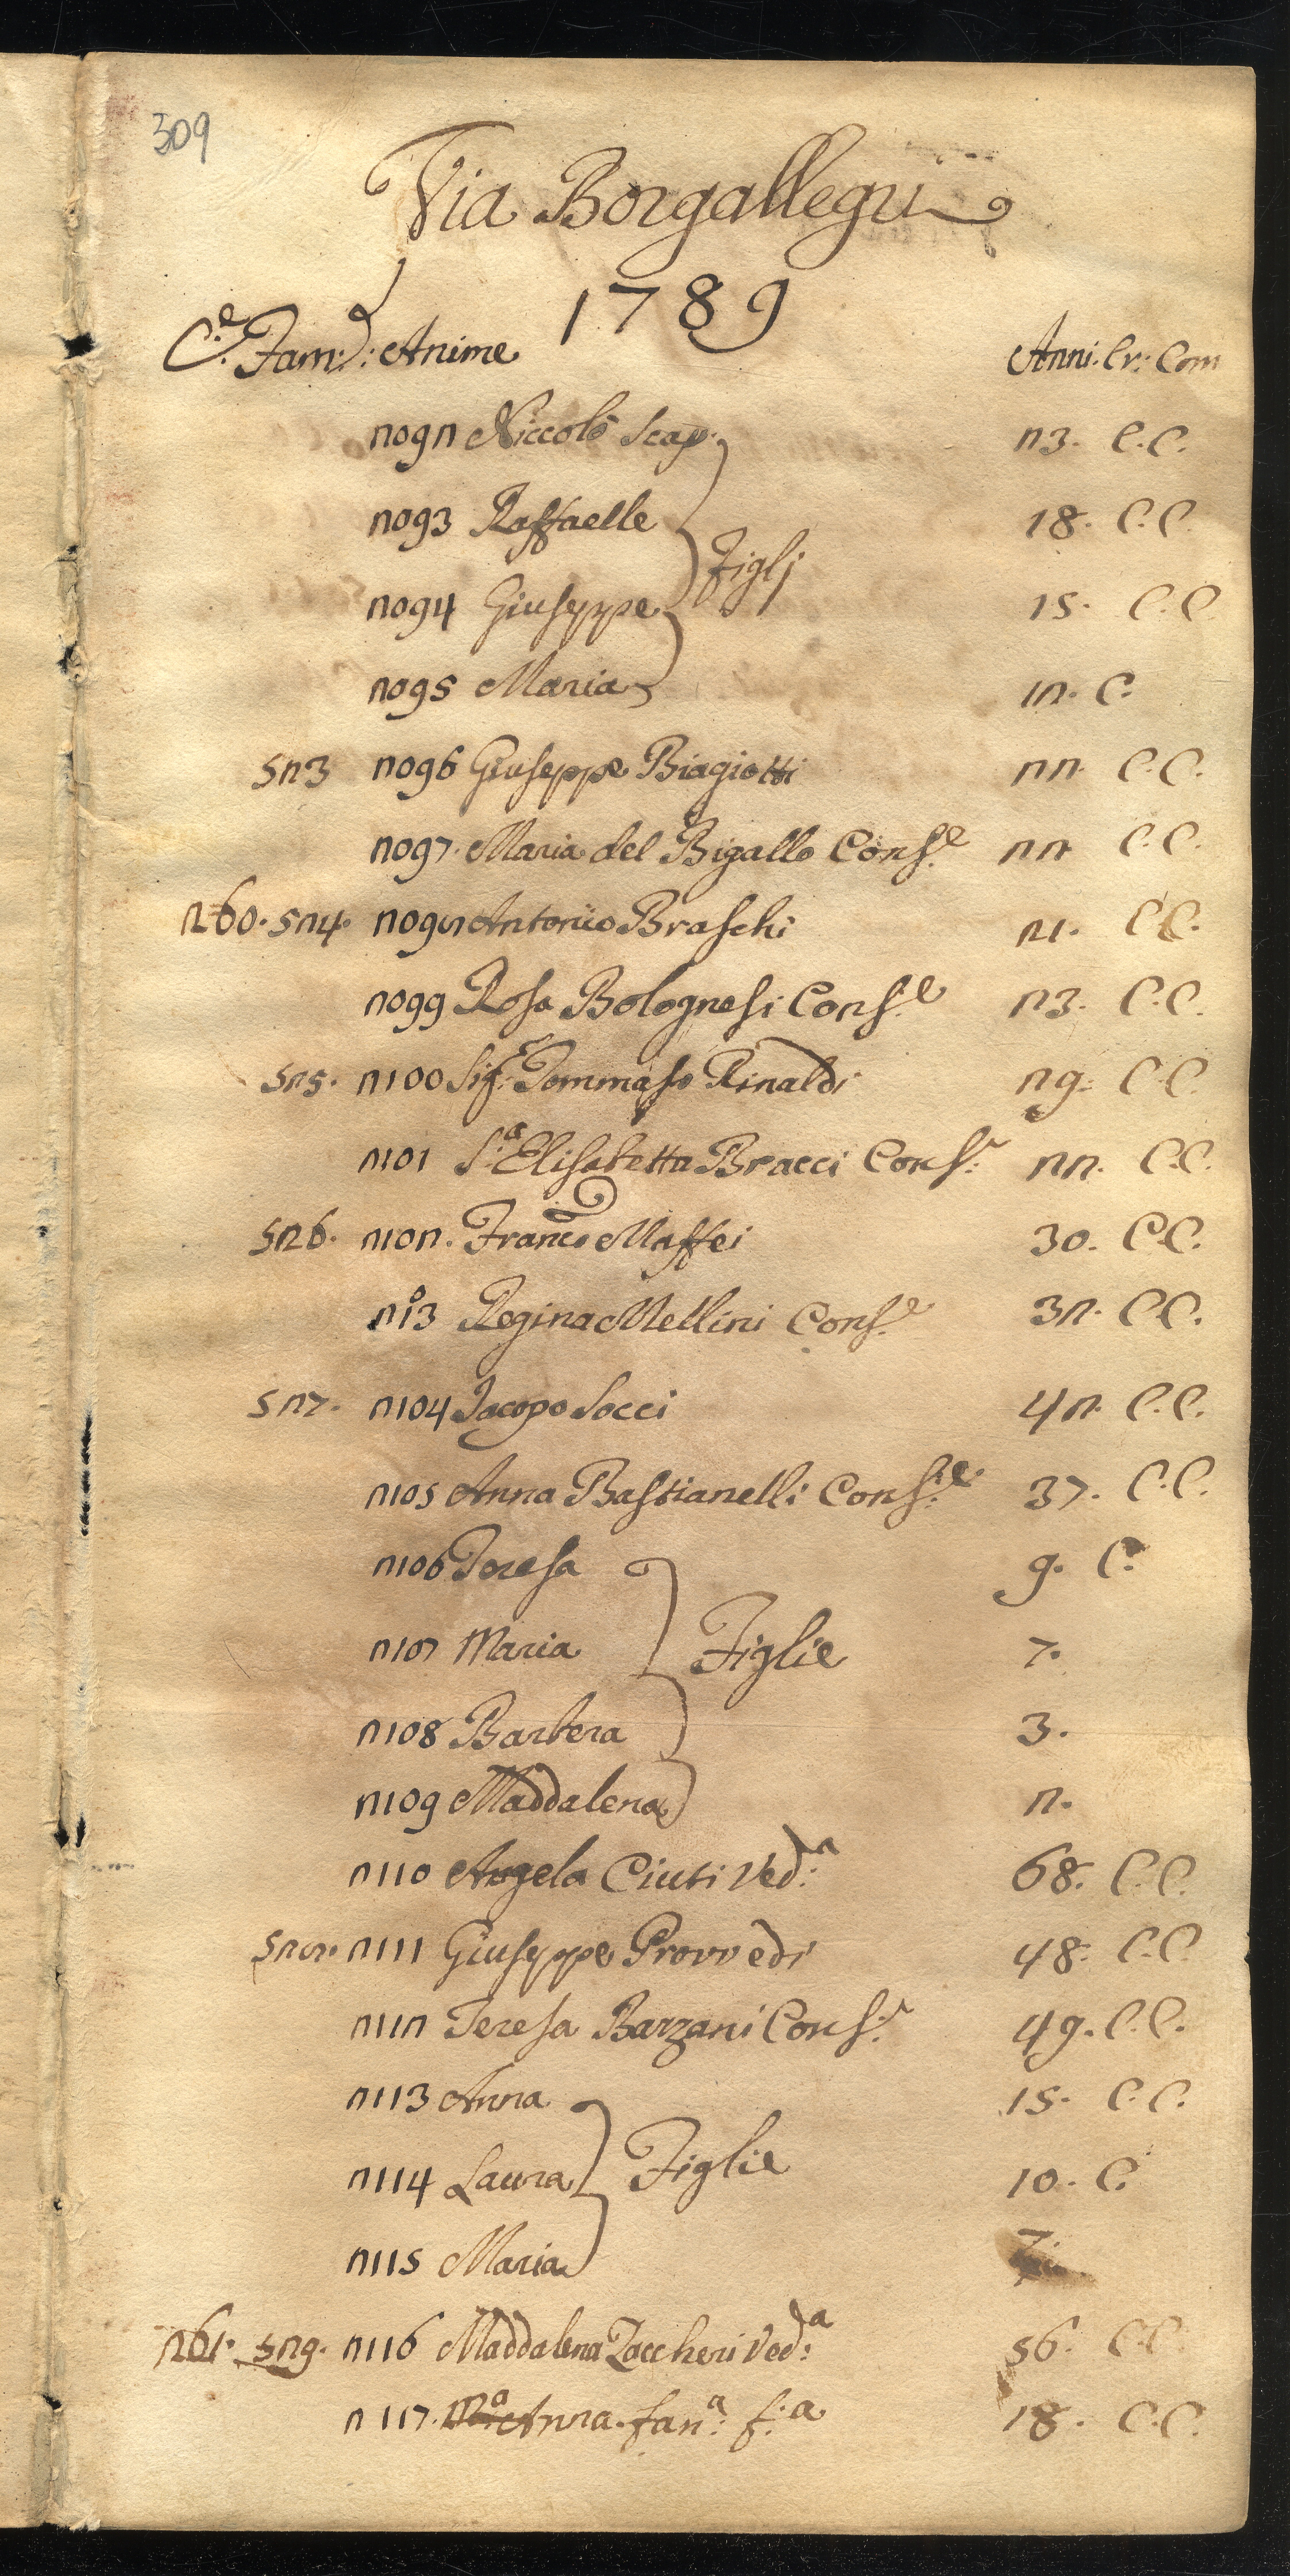 309
Via Borgallegri
1789
C.e Fam: Anime Anni. Cr: Com
2092 Niccolò Scap. 23. C.C.
2093 Raffaelle 18. C.C.
Figlj
2094 Giuseppe 15. C.C
2095 Maria 12. C.
523 2096 Giuseppe Biagiotti 22. C.C.
2097. Maria del Bigallo Cons.e 22 C.C.
260. 524. 2098 Antonio Braschi 21. C.C.
2099 Rosa Bolognesi Cons.e 23. C.C.
525. 2100 Sig.r Tommaso Rinaldi 29. C.C.
2101 S.a Elisabetta Bracci Cons.e 22. C.C.
526. 2102. Franco Maffei 30. C.C.
2103 Regina Mellini Cons.e 32. C.C.
527. 2104 Jacopo Socci 42. C.C.
2105 Anna Bastianelli Cons.e 37. C.C.
2106 Teresa 9. C.
2107 Maria Figlie 7.
2108 Barbera 3.
2109 Maddalena 2.
2110 Angela Ciuti Ved.a 68. C.C.
528. 2111 Giuseppe Provvedi 48. C.C
2112 Teresa Barzani Cons.e 49. C.C.
2113 Anna 15. C.C.
2114 Laura Figlie 10. C.
2115 Maria 7.
261. 529. 2116 Maddalena Zaccheri Ved.a 56. C.C.
2117. M.a Anna fan.a f.a 18. C.C.